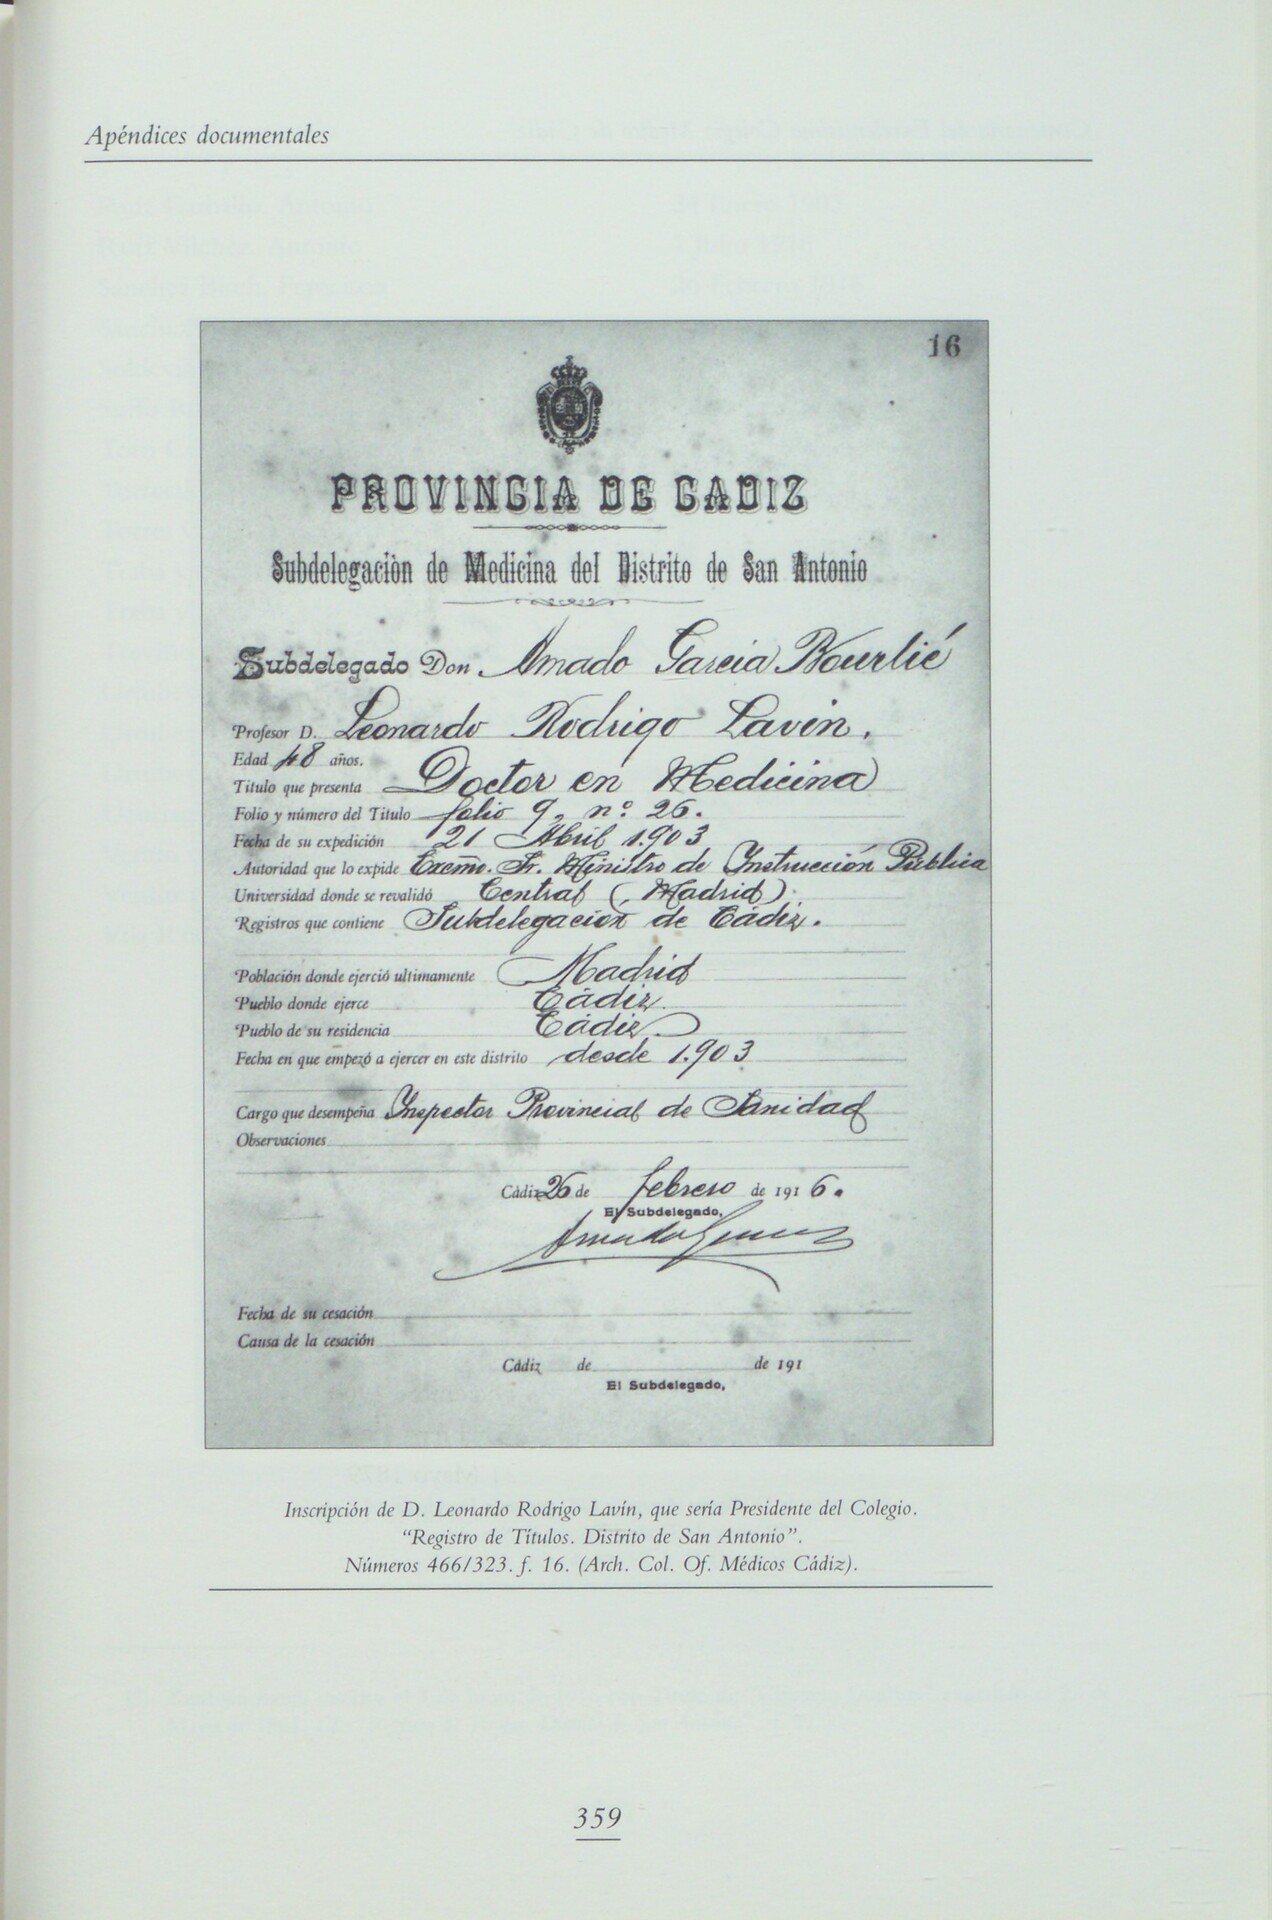 Apéndices documentales
16
PROVINCIA DE CADIZ
Subdelegaciòn de Medicina del Distrito de San Antonio
Subdelegado Don Amado Garcia Bourlié
Profesor D. Leonardo Rodrigo Lavin.
Edad 48 años.
Titulo que presenta Doctor en Medicina
Folio y número del Titulo folio 9, n.º 26.
Fecha de su expedición 21 Abril 1.903
Autoridad que lo expide Excmo. Sr. Ministro de Instrucción Publica
Universidad donde se revalidó Central (Madrid).
Registros que contiene Subdelegacion de Cádiz.
Población donde ejerció ultimamente Madrid
Pueblo donde ejerce Cádiz.
Pueblo de su residencia Cádiz.
Fecha en que empezó a ejercer en este distrito desde 1.903
Cargo que desempeña Inspector Provincial de Sanidad
Observaciones
Cádiz 26 de febrero de 1916.
El Subdelegado,
Fecha de su cesación
Causa de la cesación
Cádiz de de 191
El Subdelegado,
Inscripción de D. Leonardo Rodrigo Lavín, que sería Presidente del Colegio.
“Registro de Títulos. Distrito de San Antonio”.
Números 466/323. f. 16. (Arch. Col. Of. Médicos Cádiz).
359